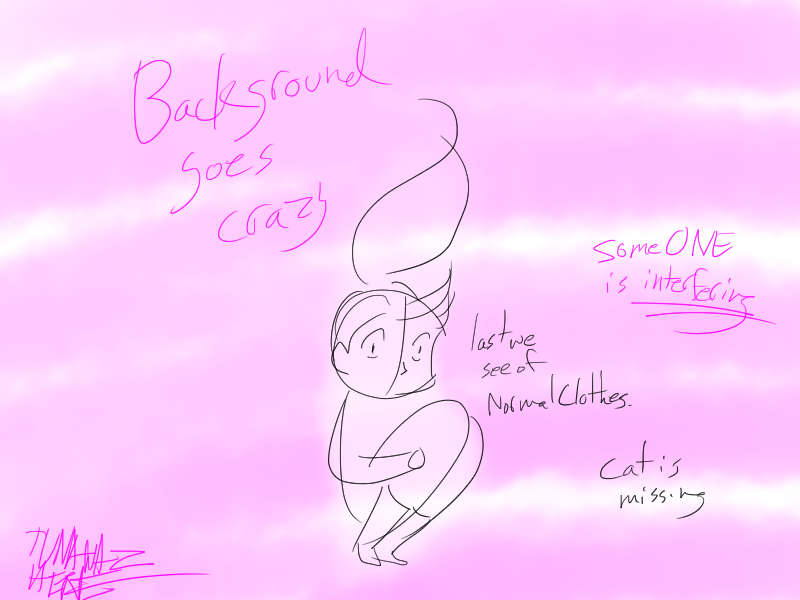 Background
goes
crazy
someONE
is interfering
last we
see of
Normal Clothes.
cat is
missing